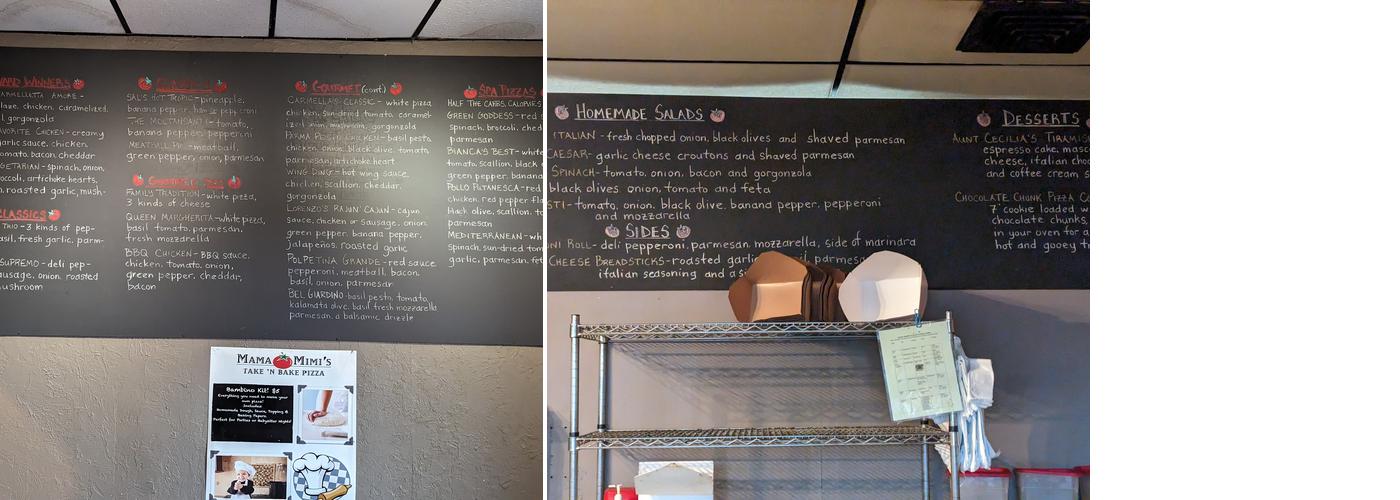 WINNERS
AMORE-
chicken, caramelized
gorgonzola
CHICKEN-creamy
garlic sauce, chicken,
tomato, bacon, cheddar
spinach, onion,
artichoke hearts,
roasted garlic, mush-
CLASSICS
TRIO-3 kinds of pep-
fresh garlic, parm-
SUPREMO-deli pep-
sausage, onion, roasted
mushroom
SAL'S HOT TROPIC-pineapple,
banana pepper, ham or pepperoni
tomato,
banana pepper, pepperoni
meatball,
green pepper, onion, parmesan
FAMILY TRADITION-white pizza,
3 kinds of cheese
QUEEN MARGHERITA-white pizza,
basil, tomato, parmesan,
fresh mozzarella
BBQ CHICKEN-BBQ sauce,
chicken, tomato, onion,
green pepper, cheddar,
bacon
GOURMET (cont.)
CARMELLA'S CLASSIC-white pizza
chicken, sun-dried tomato, caramel-
ized onion, mushroom, gorgonzola
PARMA PESTO CHICKEN-basil pesto,
chicken, onion, black olive, tomato,
parmesan, artichoke heart
WING DING-hot wing sauce,
chicken, scallion, cheddar,
gorgonzola
LORENZO'S RAJUN' CAJUN-cajun
sauce, chicken or sausage, onion,
green pepper, banana pepper,
jalapeños, roasted garlic
POLPETINA GRANDE-red sauce
pepperoni, meatball, bacon,
basil, onion, parmesan
BEL GIARDINO-basil pesto, tomato,
kalamata olive, basil, fresh mozzarella
parmesan, a balsamic drizzle
SPA PIZZAS
HALF THE CARBS, CALORIES
GREEN GODDESS-red s
spinach, broccoli, ched
parmesan
BIANCA'S BEST-white
tomato, scallion, black
chicken
POLLO PUTANESCA-red
chicken, red pepper fla
black olive, scallion, to
parmesan
MEDITERRANEAN-wh
spinach, sun-dried tom
garlic, parmesan, fet
MAMA MIMI'S
TAKE 'N BAKE PIZZA
Bambino Kit! $5
Everything you need to make your
own pizza!
Includes:
Homemade Dough, Sauce, Topping &
Baking Papers
Perfect for Parties or Babysitter Night!
HOMEMADE SALADS
ITALIAN-fresh chopped onion, black olives and shaved parmesan
CAESAR-garlic cheese croutons and shaved parmesan
SPINACH-tomato, onion, bacon and gorgonzola
black olives, onion, tomato and feta
STI-tomato, onion, black olive, banana pepper, pepperoni
and mozzarella
SIDES
ONI ROLL-deli pepperoni, parmesan, mozzarella, side of marinara
CHEESE BREADSTICKS-roasted garlic oil, parmesan
italian seasoning and a si
DESSERTS
AUNT CECILIA'S TIRAMIS
espresso cake, masc
cheese, italian cho
and coffee cream s
CHOCOLATE CHUNK PIZZA CO
7" cookie loaded w
chocolate chunks,
in your oven for a
hot and gooey t